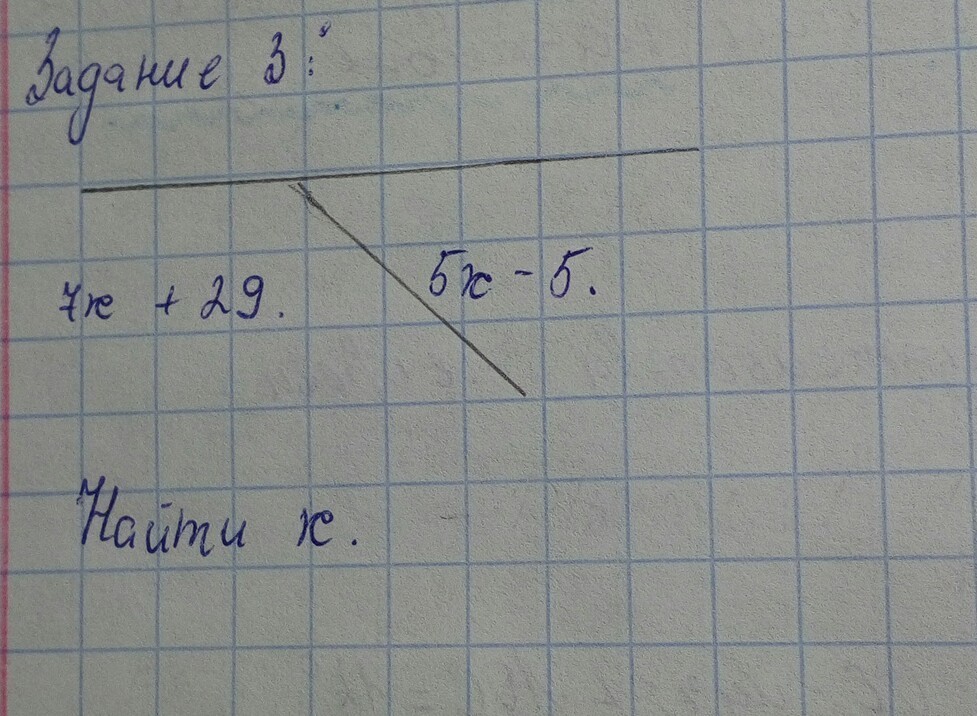 Задание 3:
7x + 29.
5x - 5.
Найти x.